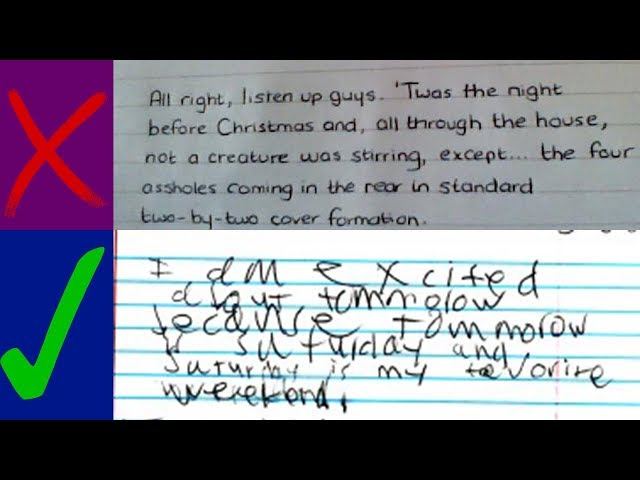 All right, listen up guys. 'Twas the night
before Christmas and, all through the house,
not a creature was stirring, except... the four
assholes coming in the rear in standard
two-by-two cover formation.
I am excited
about tommorow
because tommorow
is saturday and
Saturday is my favorite
weekend.